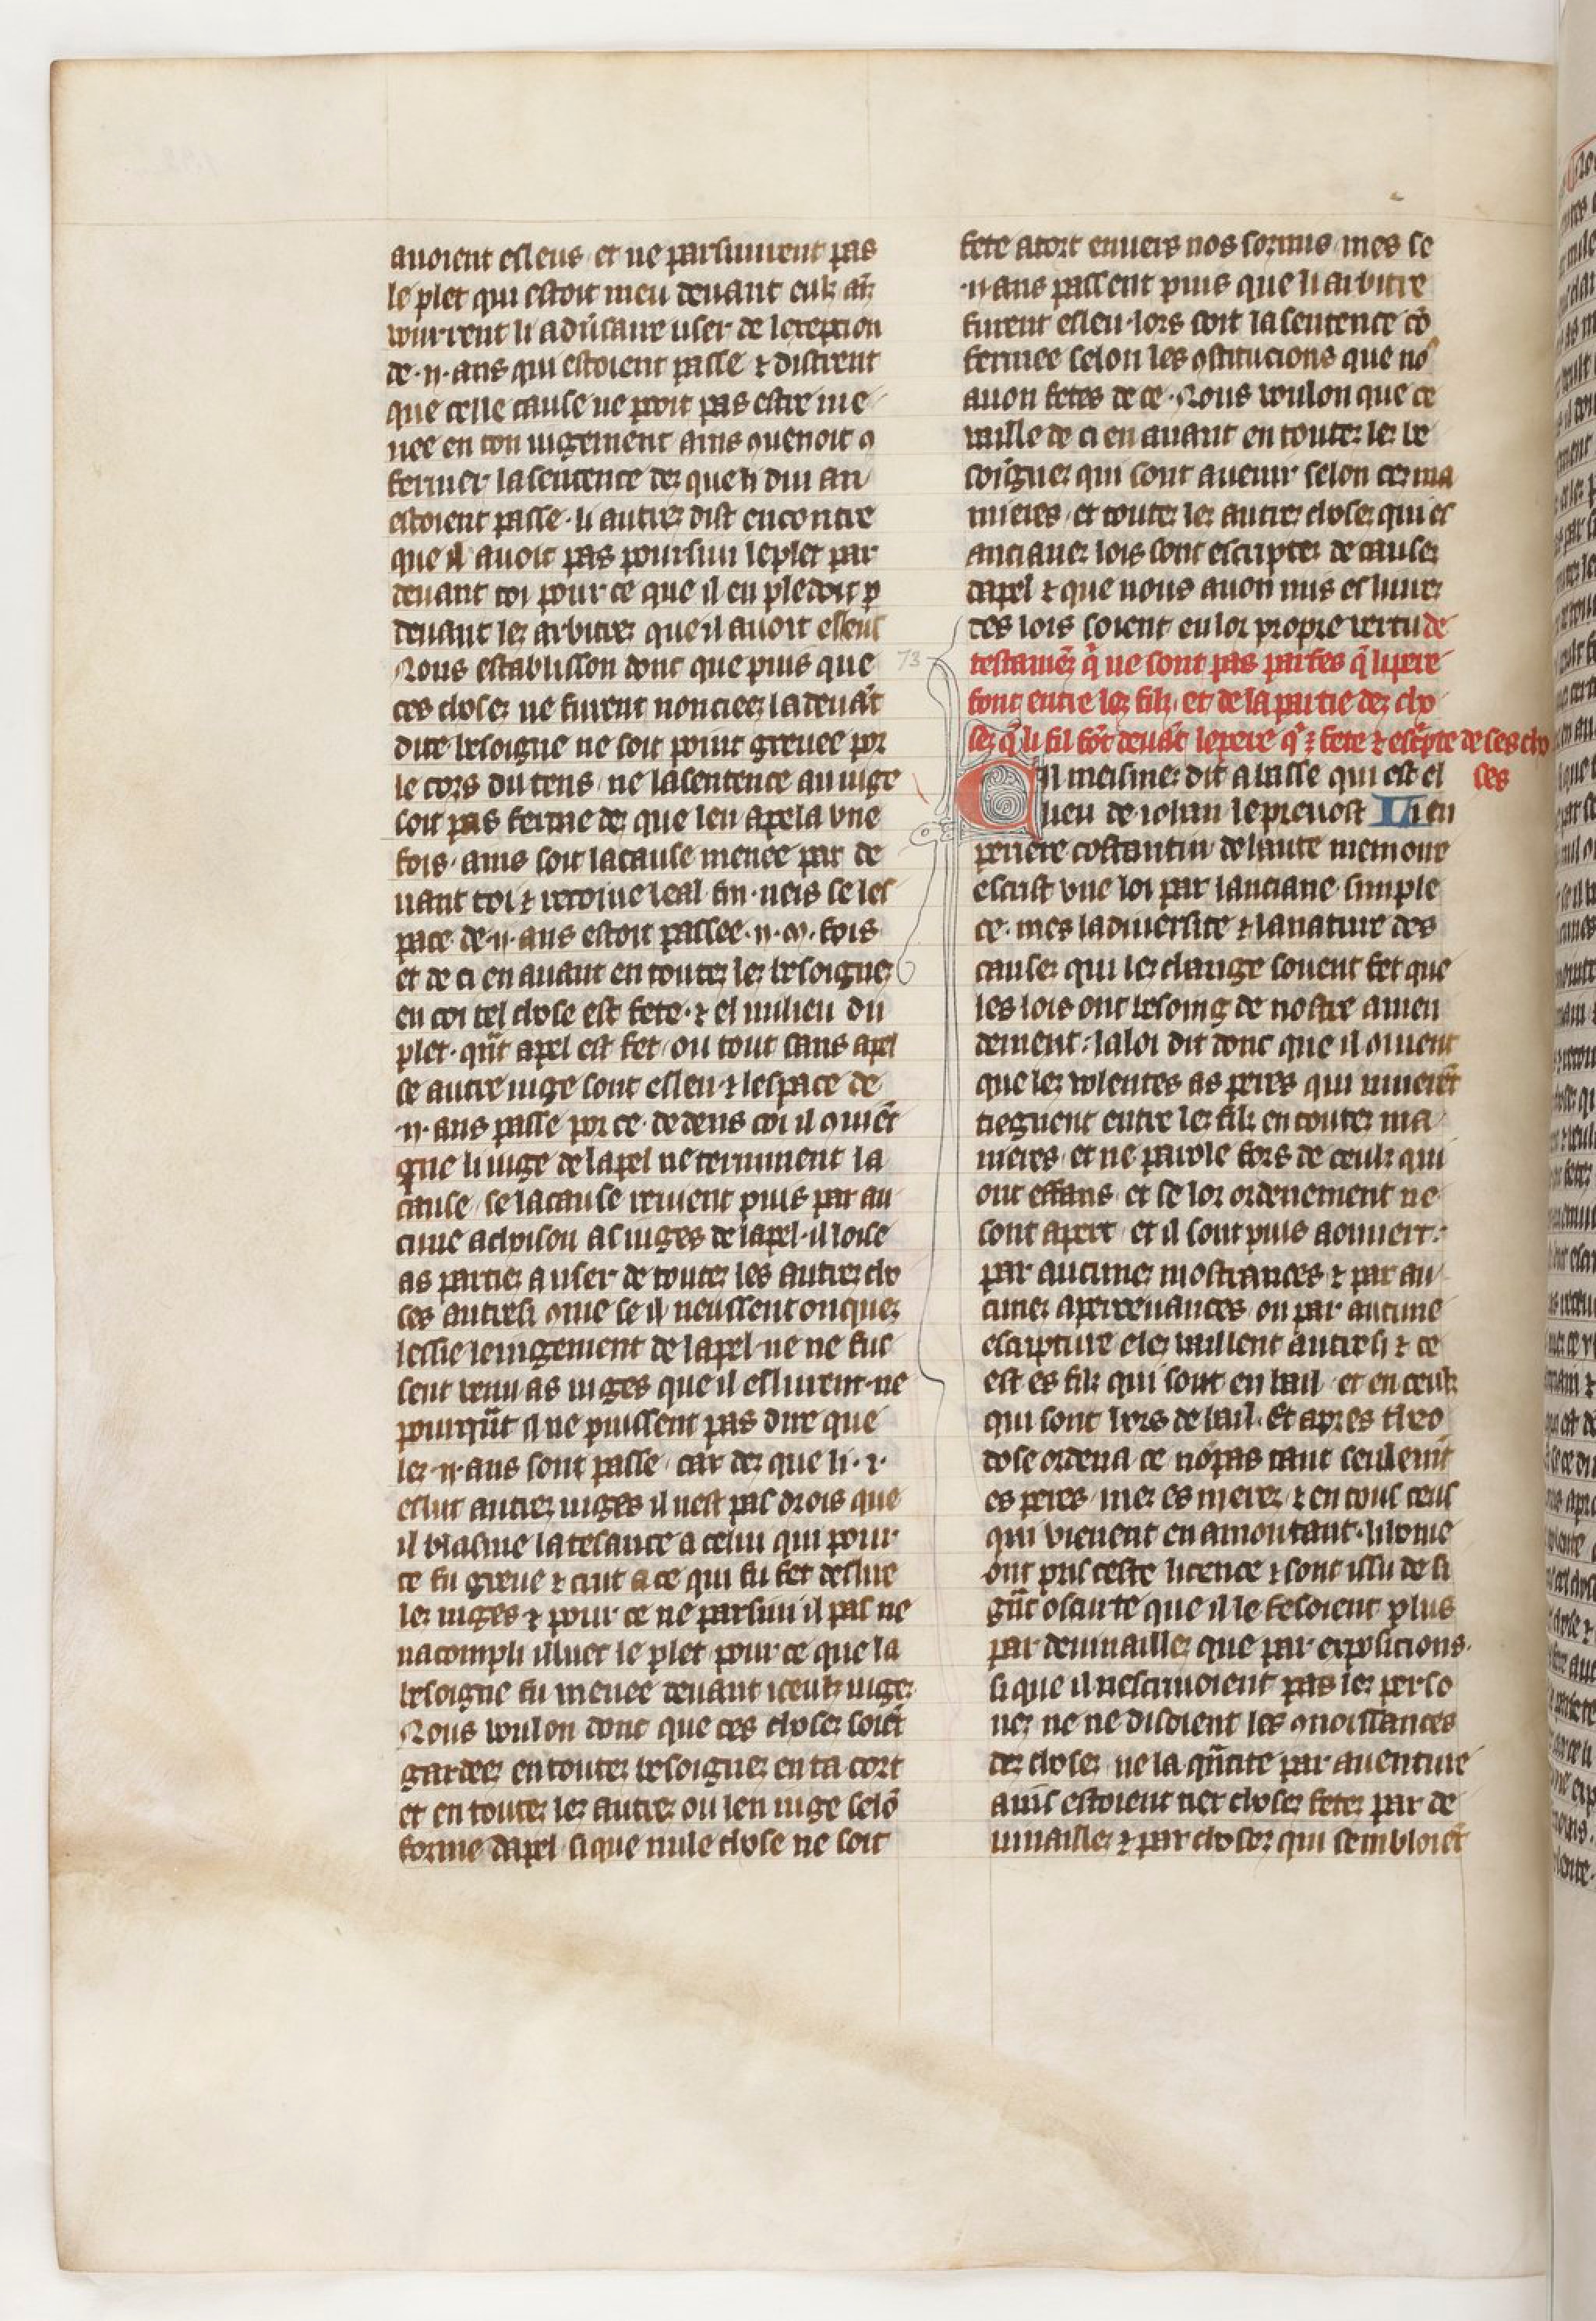 auoient esleus et ne parsiuuirent pas
le plet qui estoit meu deuant eulz ainz
voudrent li aduersaire user de lexepcion
de .ii. ans qui estoient passe ⁊ distrent
que celle cause ne pooit pas estre me
nee en ton iugement ains ꝯuenoit ꝯ
fermer la sentence dez que li dui an
estoient passe. li autrez dist encontre
que il auoit pas poursiui le plet par
deuant toi pour ce que il en pledoit ꝑ
deuant lez arbitrez que il auoit esleus
Nous establisson dont que puis que
ces chosez ne furent nonciees la deuāt
dite besoigne ne soit point greuee por
le cors du tens ne la sentence au iuge
soit pas ferme dez que len apela vne
fois. ains soit la cause menee par de
uant toi ⁊ recoiue leal fin. neis se les
pace de .ii. ans estoit passee .ii. m. fois
et de ci en auant en toutez lez besoignez
en coi tel chose est fete. ⁊ el milieu du
plet. qn̄t apel est fet ou tout sans apel
se autre iuge sont esleu ⁊ lespace de
.ii. ans passe por ce. dedens coi il ꝯuiēt
que li iuge de lapel ne terminent la
cause se la cause reuient puis par au
cune achoison as iuges de lapel. il loise
as partiez a user de toutez les autrez cho
ses autresi ꝯme se il neussent onquez
lessie le iugement de lapel ne ne fus
sent venu as iuges que il eslurent. ne
pourqn̄t il ne puissent pas dire que
lez .ii. ans sont passe car dez que li .i.
eslut autrez iuges il nest pas drois que
il blasme la tesance a celui qui pour
ce fu greue ⁊ crut a ce qui fu fet deslire
lez iuges ⁊ pour ce ne parsiui il pas ne
nacompli illuec le plet pour ce que la
besoigne fu menee deuant iceulz iugez
Nous voulon dont que ces chosez soiēt
gardeez en toutez besoignez en ta cort
et en toutez lez autrez ou len iuge selō
forme dapel si que nule chose ne soit
fete a tort enuers nos sormis mes se
.ii. ans passent puis que li arbitre
furent esleu. lors soit la sentence cō
fermee selon les ꝯstitucions que no9
auon fetes de ce. Nous voulon que ce
vaille de ci en auant en toutez lez be
soignez qui sont auenir selon cez ma
nieres et toutez lez autrez chosez qui es
ancianez lois sont escriptez de causez
dapel ⁊ que nous auon mis es liurez
des lois soient en lor propre vertu de
testamēz q̄ ne sont pas partes q̄ li pere
font entre lez filz et de la partie dez cho
sez q̄ li fil fōt deuāt le pere qi ē fete ⁊ escͥpte de ses cho
ses
Cil meismez dit a lasse qui est el
lieu de iohan le preuost Li en
periere costantin de haute memoire
escrist vne loi par lanciane simple
ce. mes la diuersite ⁊ la nature des
causez qui lez change souent fet que
les lois ont besoing de nostre amen
dement. la loi dit donc que il ꝯuient
que lez volentes as peres qui muerēt
tiegnent entre lez filz en toutez ma
nieres et ne parole fors de ceulz qui
ont effans et se lor ordenement ne
sont apert et il sont puis aouuert
par aucunez mostrances ⁊ par au
cunez apertenances ou par aucune
escripture elez vaillent autresi ⁊ ce
est es filz qui sont en bail et en ceulz
qui sont hors de bail. Et apres theo
dose ordena ce nōpas tant seulemt̄
es peres mez es merez ⁊ en tous ceus
qui vienent en amontant. li home
ont pris ceste licence ⁊ sont issu de si
gn̄t oscurte que il le fesoient plus
par deuinaillez que par expositions.
si que il nescriuoient pas lez perso
nez ne ne disoient les ꝯnoissances
dez chosez ne la qn̄tite par auenture
ainz estoient tiex chosez fetez par de
uinaillez ⁊ par chosez qui sembloiēt
73